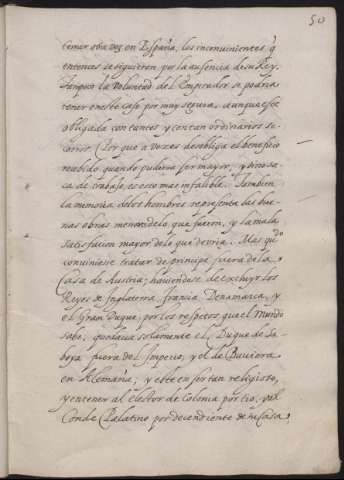 50
temer otra vez en España, los inconuinientes q̃
entonces se siguieron por la ausencia de su Rey.
Tanpoco la Voluntad del Emperador se podria
tener en este caso por muy segura, aunque esté
obligada con tantos y con tan ordinarios so-
corros: Por que a vezes desobliga el beneficio
recibido quando pudiera ser mayor, y si no sa-
ca de trabajo, es esto mas infalible. Tambien
la memoria de los hombres representa las bue-
nas obras menor de lo que fueron, y la mala
satisfacion mayor de lo que deuria. Mas qu.do
conuiniesse tratar de principe fuera de la
Casa de Austria; hauiendose de excluyr los
Reyes de Inglaterra, francia, Denamarca, y
el Gran Duque, por los respetos que el Mundo
sabe; quedaua solamente el Duque de Sa-
boya fuera del Imperio, y el de Bauiera
en Alemaña; y este en ser tan religioso,
y en tener al elector de Colonia por tio, y al
Conde Palatino por decendiente de su Casa,